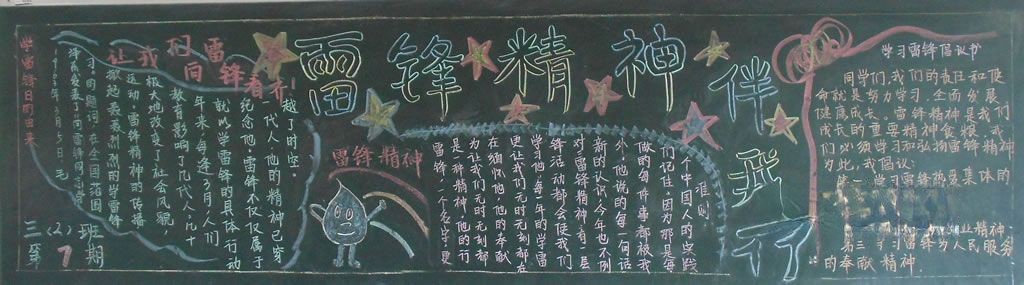 雷锋精神伴我行
学雷锋日的由来
让我们向雷锋看齐!
越了时空。
一代人,他的精神已穿
纪念他,雷锋不仅仅属于
就以学雷锋的具体行动
年来,每逢3月,人们
教育影响了几代人,几十
极大地改变了社会风貌
运动。雷锋精神的传播
掀起轰轰烈烈的学雷锋
习”的题词,在全国范围
三(2)班
第1期
雷锋精神
雷锋,一个名字,更
是一种精神,他的行
为让我们无时无刻都
在缅怀他,他的奉献
更让我们无时无刻都在
学习他,每一年的学雷
锋活动都会使我们
对雷锋精神有一层
新的认识,今年也不例
外,他说的每一句话
做的每件事都被我
们记住,因为那是每
一个中国人的实践
准则
学习雷锋倡议书
同学们,我们的责任和使
命就是努力学习,全面发展
健康成长。雷锋精神是我们
成长的重要精神食粮,我
们必须学习和弘扬雷锋精神
为此,我倡议:
学习雷锋热爱集体的
精神
第三,学习雷锋为人民服务
的奉献精神